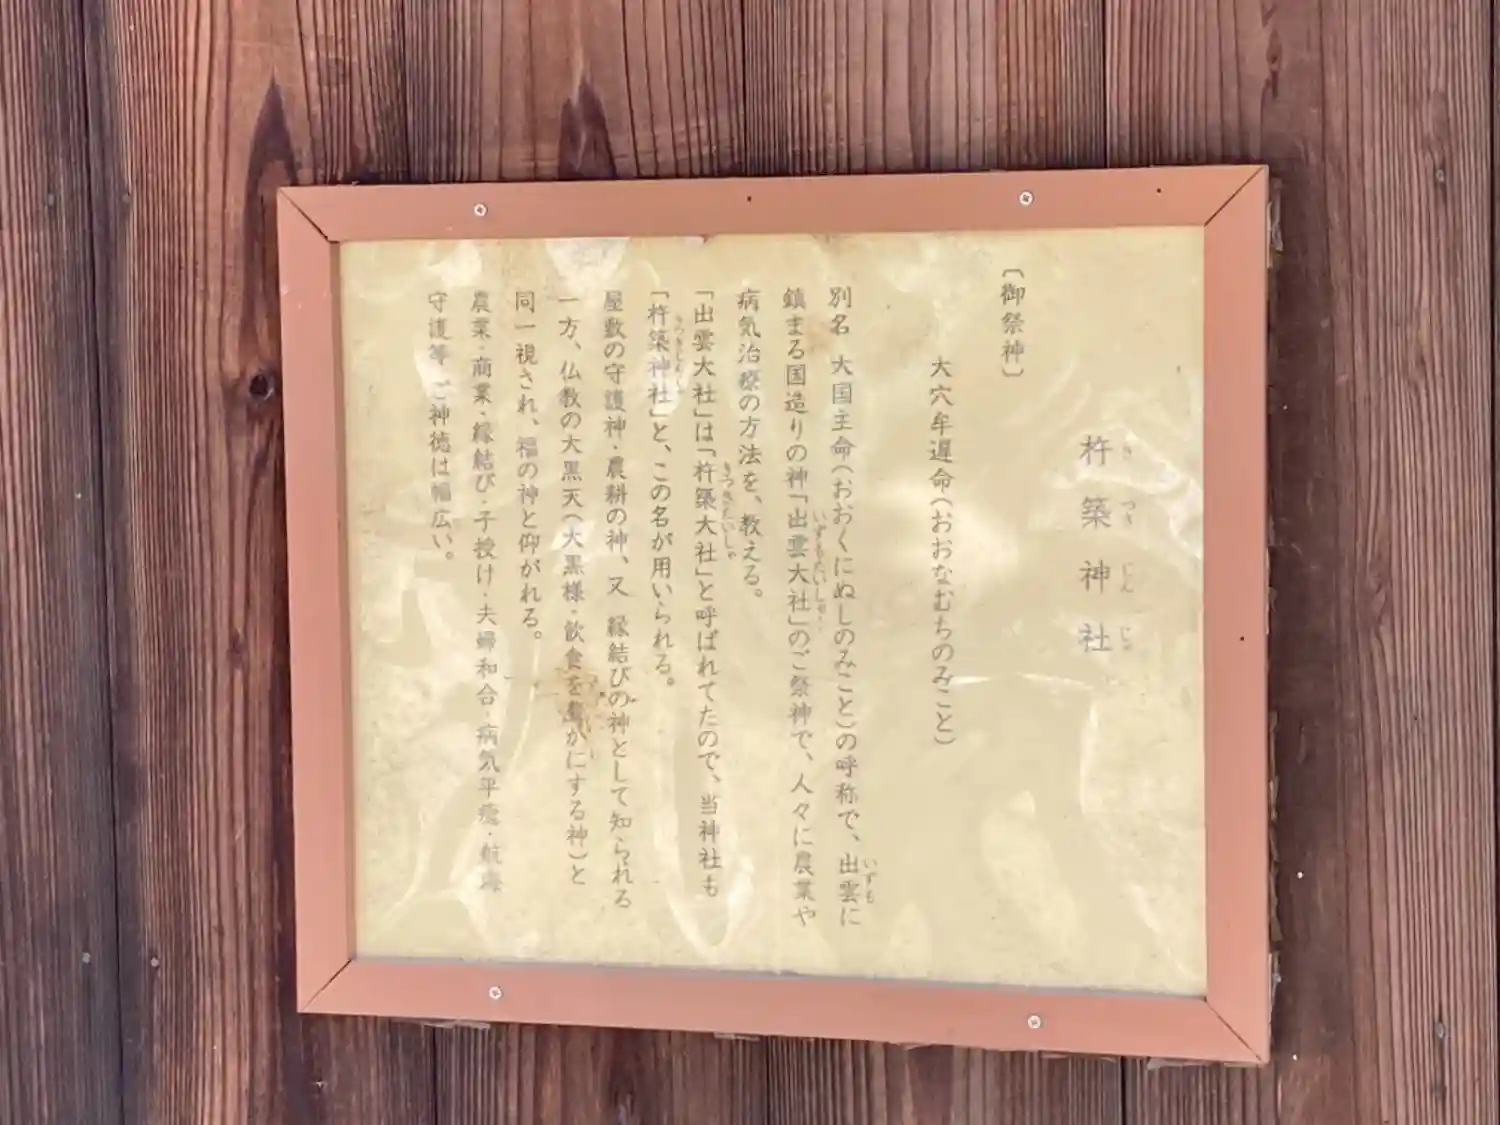 杵築神社
きつくじんじゃ
〔御祭神〕
大穴牟遅命(おおなむちのみこと)
別名　大国主命(おおくにぬしのみこと)の呼称で、出雲に
いずも
鎮まる国造りの神「出雲大社」のご祭神で、人々に農業や
いずもたいしゃ
病気治療の方法を、教える。
「出雲大社」は「杵築大社」と呼ばれてたので、当神社も
きつきたいしゃ
「杵築神社」と、この名が用いられる。
きつきじんじゃ
屋敷の守護神・農耕の神、又　縁結びの神として知られる
一方、仏教の大黒天(大黒様・飲食を豊かにする神)と
同一視され、福の神と仰がれる。
農業・商業・縁結び・子授け・夫婦和合・病気平癒・航海
守護等　ご神徳は幅広い。